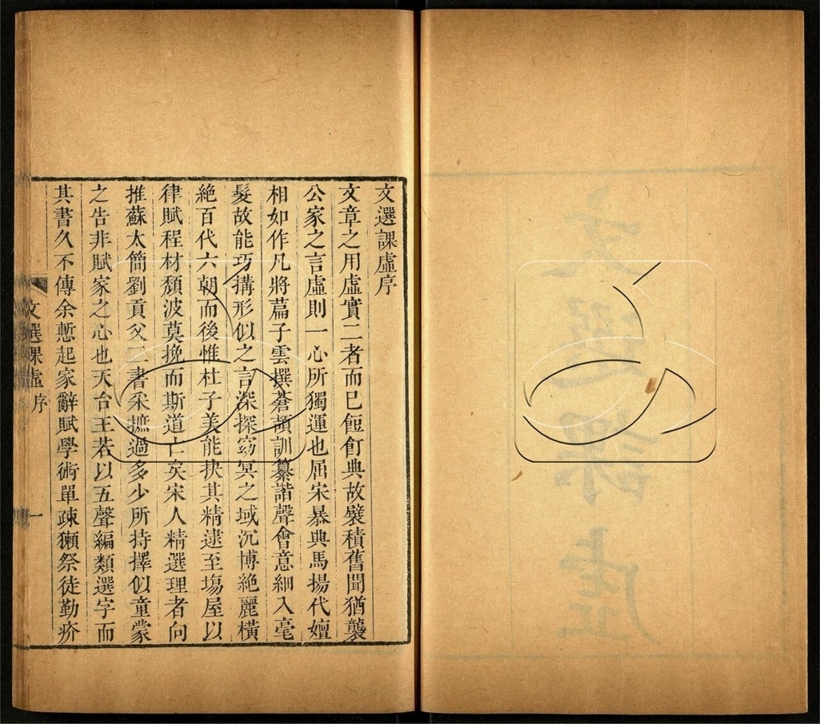 文選課虛序
文章之用虛實二者而已飣餖典故襞積舊聞猶襲
公家之言虛則一心所獨運也屈宋暴典馬揚代嬗
相如作凡將篇子雲撰蒼頡訓纂諧聲會意細入毫
髮故能巧搆形似之言深探窈冥之域沉博絶麗橫
絶百代六朝而後惟杜子美能抉其精逮至塲屋以
律賦程材頹波莫挽而斯道亡矣宋人精選理者向
推蘇太簡劉貢父二書采摭過多少所持擇似童蒙
之告非賦家之心也天台王若以五聲編類選字而
其書久不傳余慙起家辭賦學術單疎獺祭徒勤疥
文選課虛
序
一
文選課虛